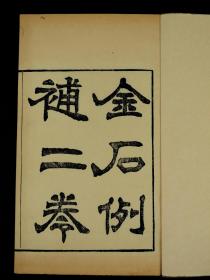 金石例
補二卷